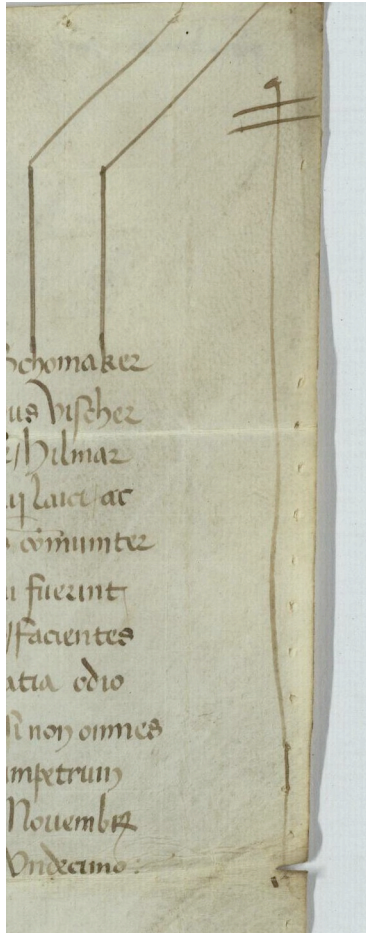 Schomaker
us Vischer
Hilmar
laici / ac
com̄uniter
fuerint
/ facientes
atia odio
non omnes
impetrum
Nouembrꝭ
Vndecimo :